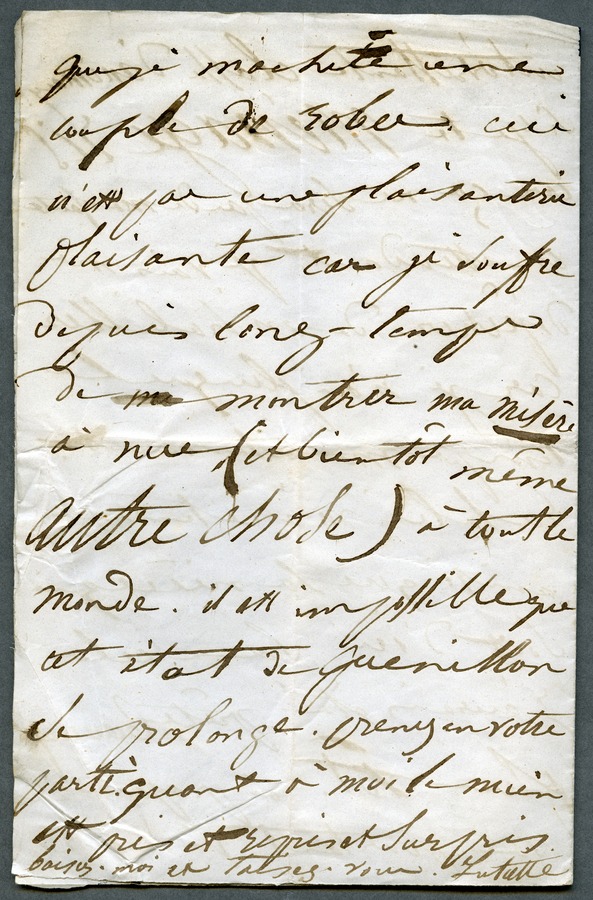 que je m'achète une
couple de robes. ceci
n'est pas une plaisanterie
plaisante car je souffre
depuis long-temps
de me montrer ma misère
à nue (et bientôt même
autre chose) à tout le
monde. il est impossible que
cet état de guenillon
se prolonge. prenez en votre
parti. quant à moi le mien
est pris et repris et surpris.
baisez-moi et taisez-vous.